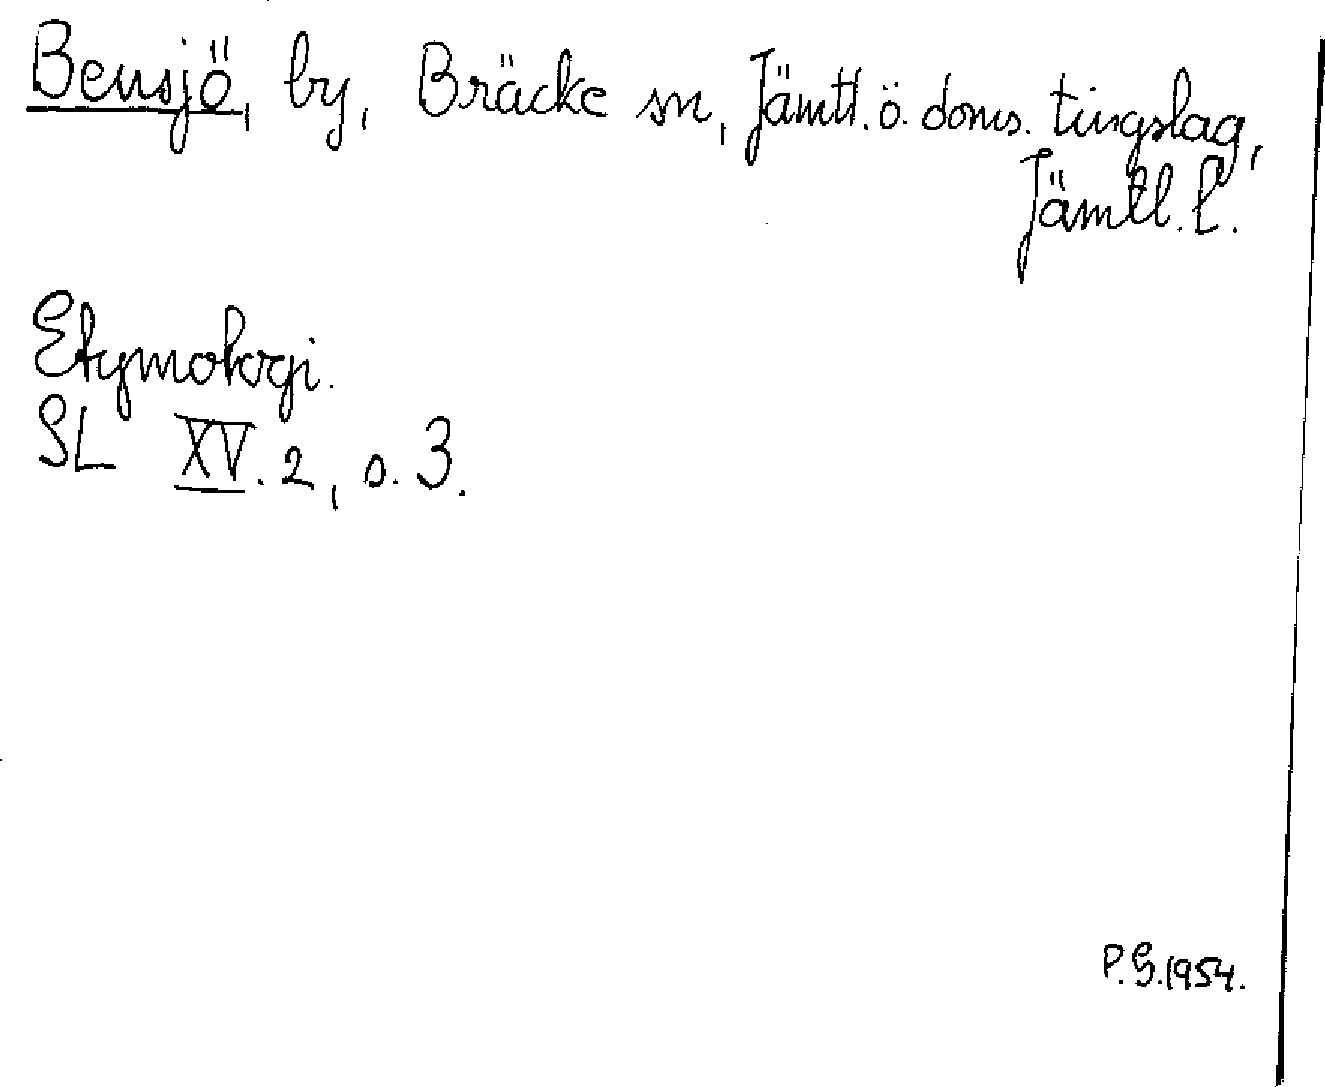 Bensjö, by, Bräcke sn, Jämtl. ö. doms. tingslag,
Jämtl. l.
Etymologi.
SL XV. 2, s. 3.
P.G. 1954.